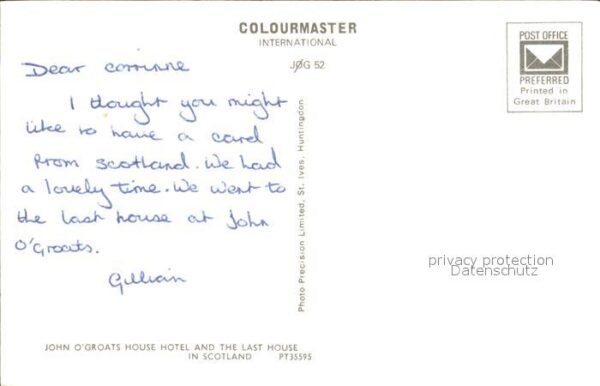 COLOURMASTER
INTERNATIONAL
JØG 52
POST OFFICE
PREFERRED
Printed in
Great Britain
Dear Corrinne
I thought you might
like to have a card
from Scotland. We had
a lovely time. We went to
the last house at John
O'Groats.
Gillian
Photo Precision Limited, St. Ives, Huntingdon
privacy protection
Datenschutz
JOHN O'GROATS HOUSE HOTEL AND THE LAST HOUSE
IN SCOTLAND PT35595